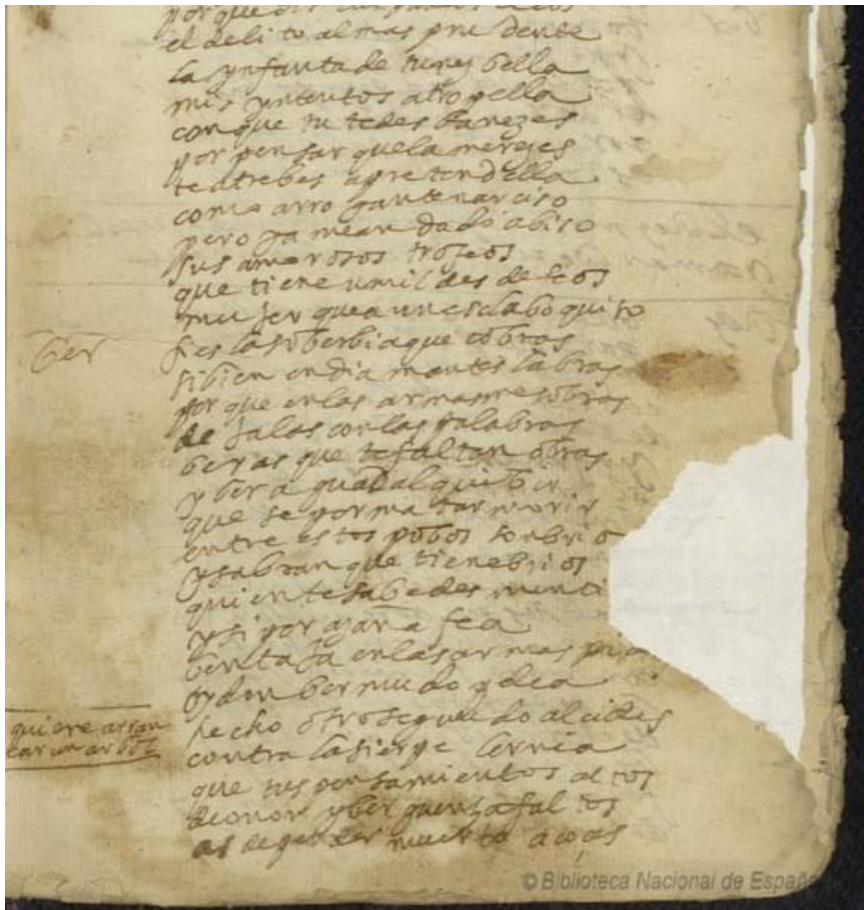 el delito al mas prudente
la ynfanta de tunez bella
mis yntentos atropella
con que tu te desbanezes
por pensar que la merezes
te atrebes a pretendella
como arrogante narciso
pero ya me an dado abiso
sus amorosos trofeos
que tiene umildes deseos
mujer que a un esclabo quiso
ber
si es la soberbia que cobras
si bien en diamantes labras
por que en las armas me sobras
dejalas con las palabras
beras que te faltan obras
y bera guadalquibir
que se por matar morir
entre estos pobos sonbrio
y sabran que tiene brios
quien te sabe desmenti
y si por azaña fea
bentaja en las armas
oy don bermudo
quiere arran
car un arbol
hecho otro segundo alcides
contra la sierpe lernea
que tus pensamientos altos
de onor y berguenza faltos
as de quedar muerto
© Biblioteca Nacional de España